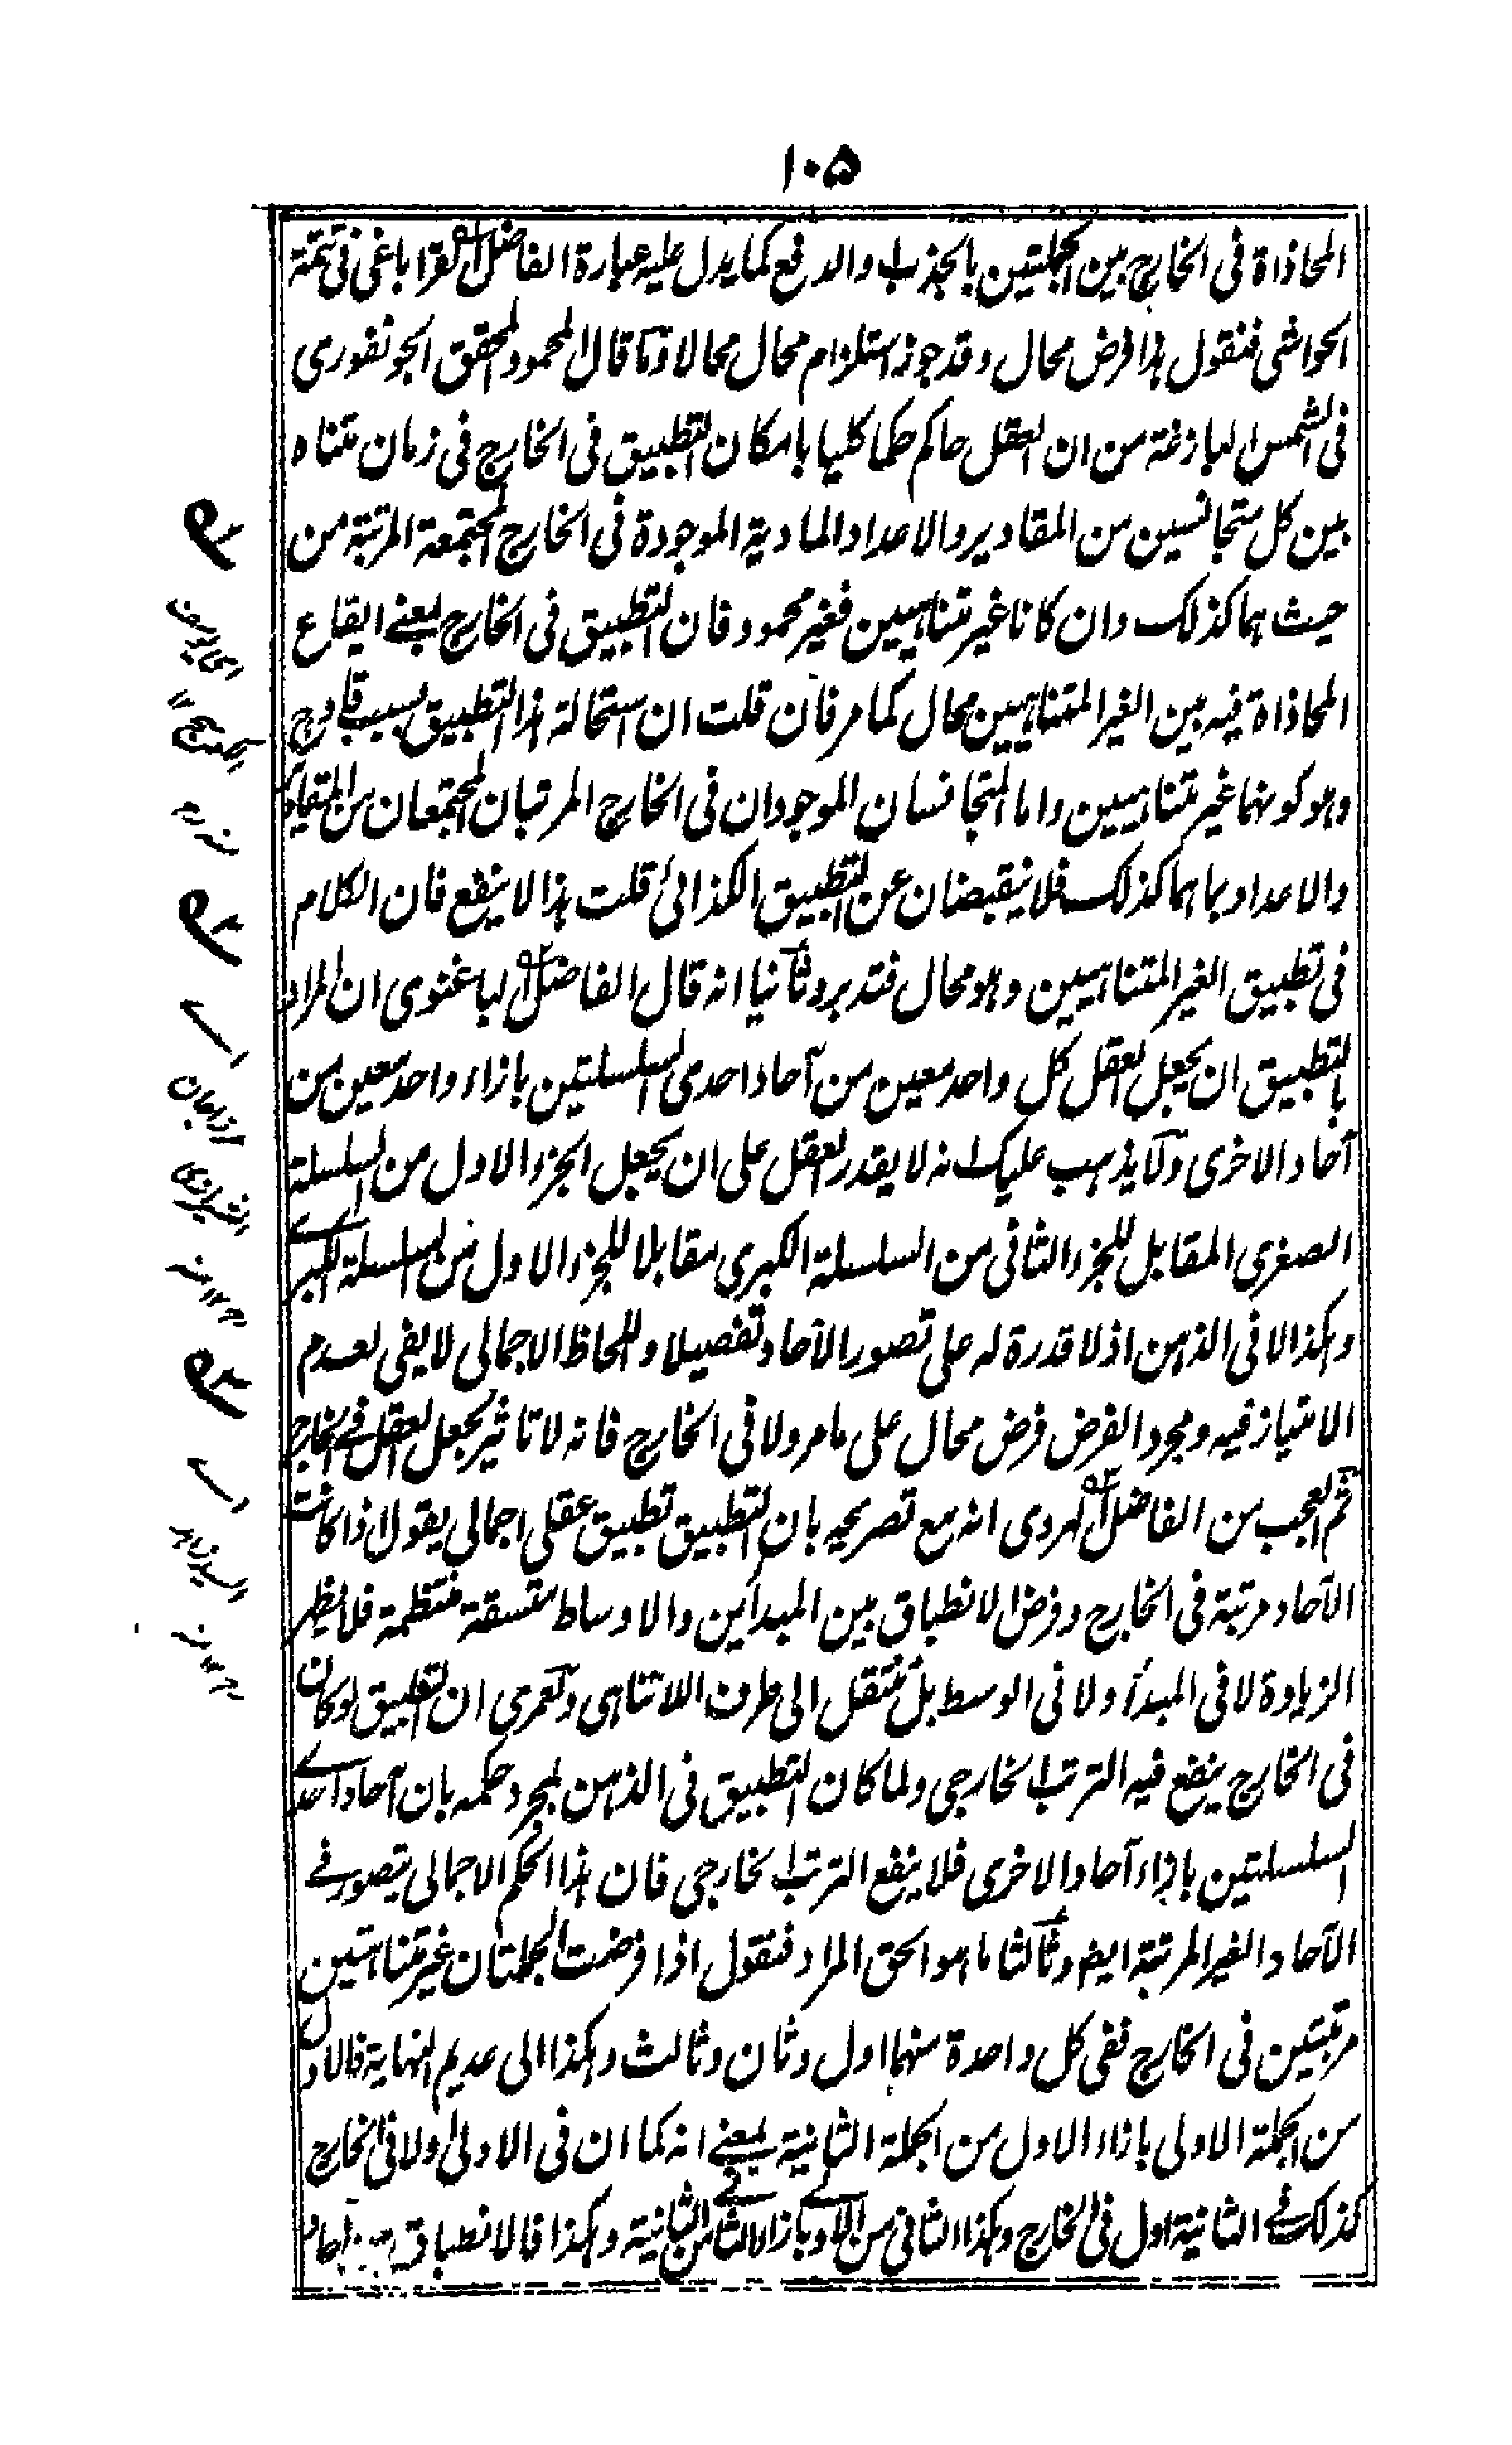 ١٠٥
المحاذاة فى الخارج بين الجملتين بالجذب والدفع كما يدل عليه عبارة الفاضل القراباغى فى تتمة
الحواشى فنقول هذا فرض محال وقد جوز استلزام محال محالا وما قال المحمود المحقق الجونفورى
فى الشمس البازغة من ان العقل حاكم حكما كليا بامكان التطبيق فى الخارج فى زمان متناه
بين كل متجانسين من المقادير والاعداد المادية الموجودة فى الخارج المجتمعة المرتبة من
حيث هما كذلك وان كانا غير متناهيين فغير محمود فان التطبيق فى الخارج بمعنے ايقاع
المحاذاة فيه بين الغير المتناهيين محال كما مر فان قلت ان استحالة هذا التطبيق بسبب خارج
وهو كونهما غير متناهيين واما المتجانسان الموجودان فى الخارج المرتبان المجتمعان من المقادير
والاعداد بما هما كذلك فلا ينقبضان عن التطبيق الكذائى قلت هذا لا ينفع فان الكلام
فى تطبيق الغير المتناهيين وهو محال فتدبر وثانيا انه قال الفاضل الباغنوى ان المراد
بالتطبيق ان يجعل العقل كل واحد معين من آحاد احدى السلسلتين بازاء واحد معين من
آحاد الاخرى ولا يذهب عليك انه لا يقدر العقل على ان يجعل الجزء الاول من السلسلة
الصغرى المقابل للجزء الثانى من السلسلة الكبرى مقابلا للجزء الاول من السلسلة الكبرے
وهكذا لا فى الذهن اذ لا قدرة له على تصور الآحاد تفصيلا واللحاظ الاجمالى لا يفى لعدم
الامتياز فيه ومجرد الفرض فرض محال على ما مر ولا فى الخارج فانه لا تاثير لجعل العقل فے الخارج
ثم العجب من الفاضل الهروى انه مع تصريحه بان التطبيق تطبيق عقلى اجمالى يقول اذا كانت
الآحاد مرتبة فى الخارج وفرض الانطباق بين المبدأين والاوساط متسقة منتظمة فلا يظهر
الزيادة لا فى المبدأ ولا فى الوسط بل ينتقل الى طرف اللاتناهى ولعمرى ان التطبيق لو كان
فى الخارج ينفع فيه الترتب الخارجى ولما كان التطبيق فى الذهن لمجرد حكمه بان آحاد احدے
السلسلتين بازاء آحاد الاخرى فلا ينفع الترتب الخارجى فان هذا الحكم الاجمالى يتصور فے
الآحاد الغير المرتبة ايضا وثالثا ما هو الحق المراد فنقول اذا فرضت الجملتان غير متناهيتين
مرتبتين فى الخارج ففى كل واحدة منهما اول وثان وثالث وهكذا الى عديم النهاية فالاول
من الجملة الاولى بازاء الاول من الجملة الثانية بمعنے انه كما ان فى الاولى اولا فى الخارج
كذلك فے الثانية اول فى الخارج وهكذا الثانى من الاولے بازاء الثانے من الثانية وهكذا فالانطباق بين آحاد